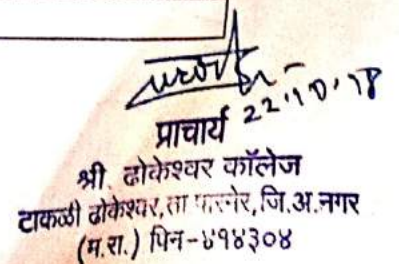 22.10.18
प्राचार्य
श्री. ढोकेश्वर कॉलेज
टाकळी ढोकेश्वर, ता पारनेर, जि.अ.नगर
(म.रा.) पिन-४१४३०४